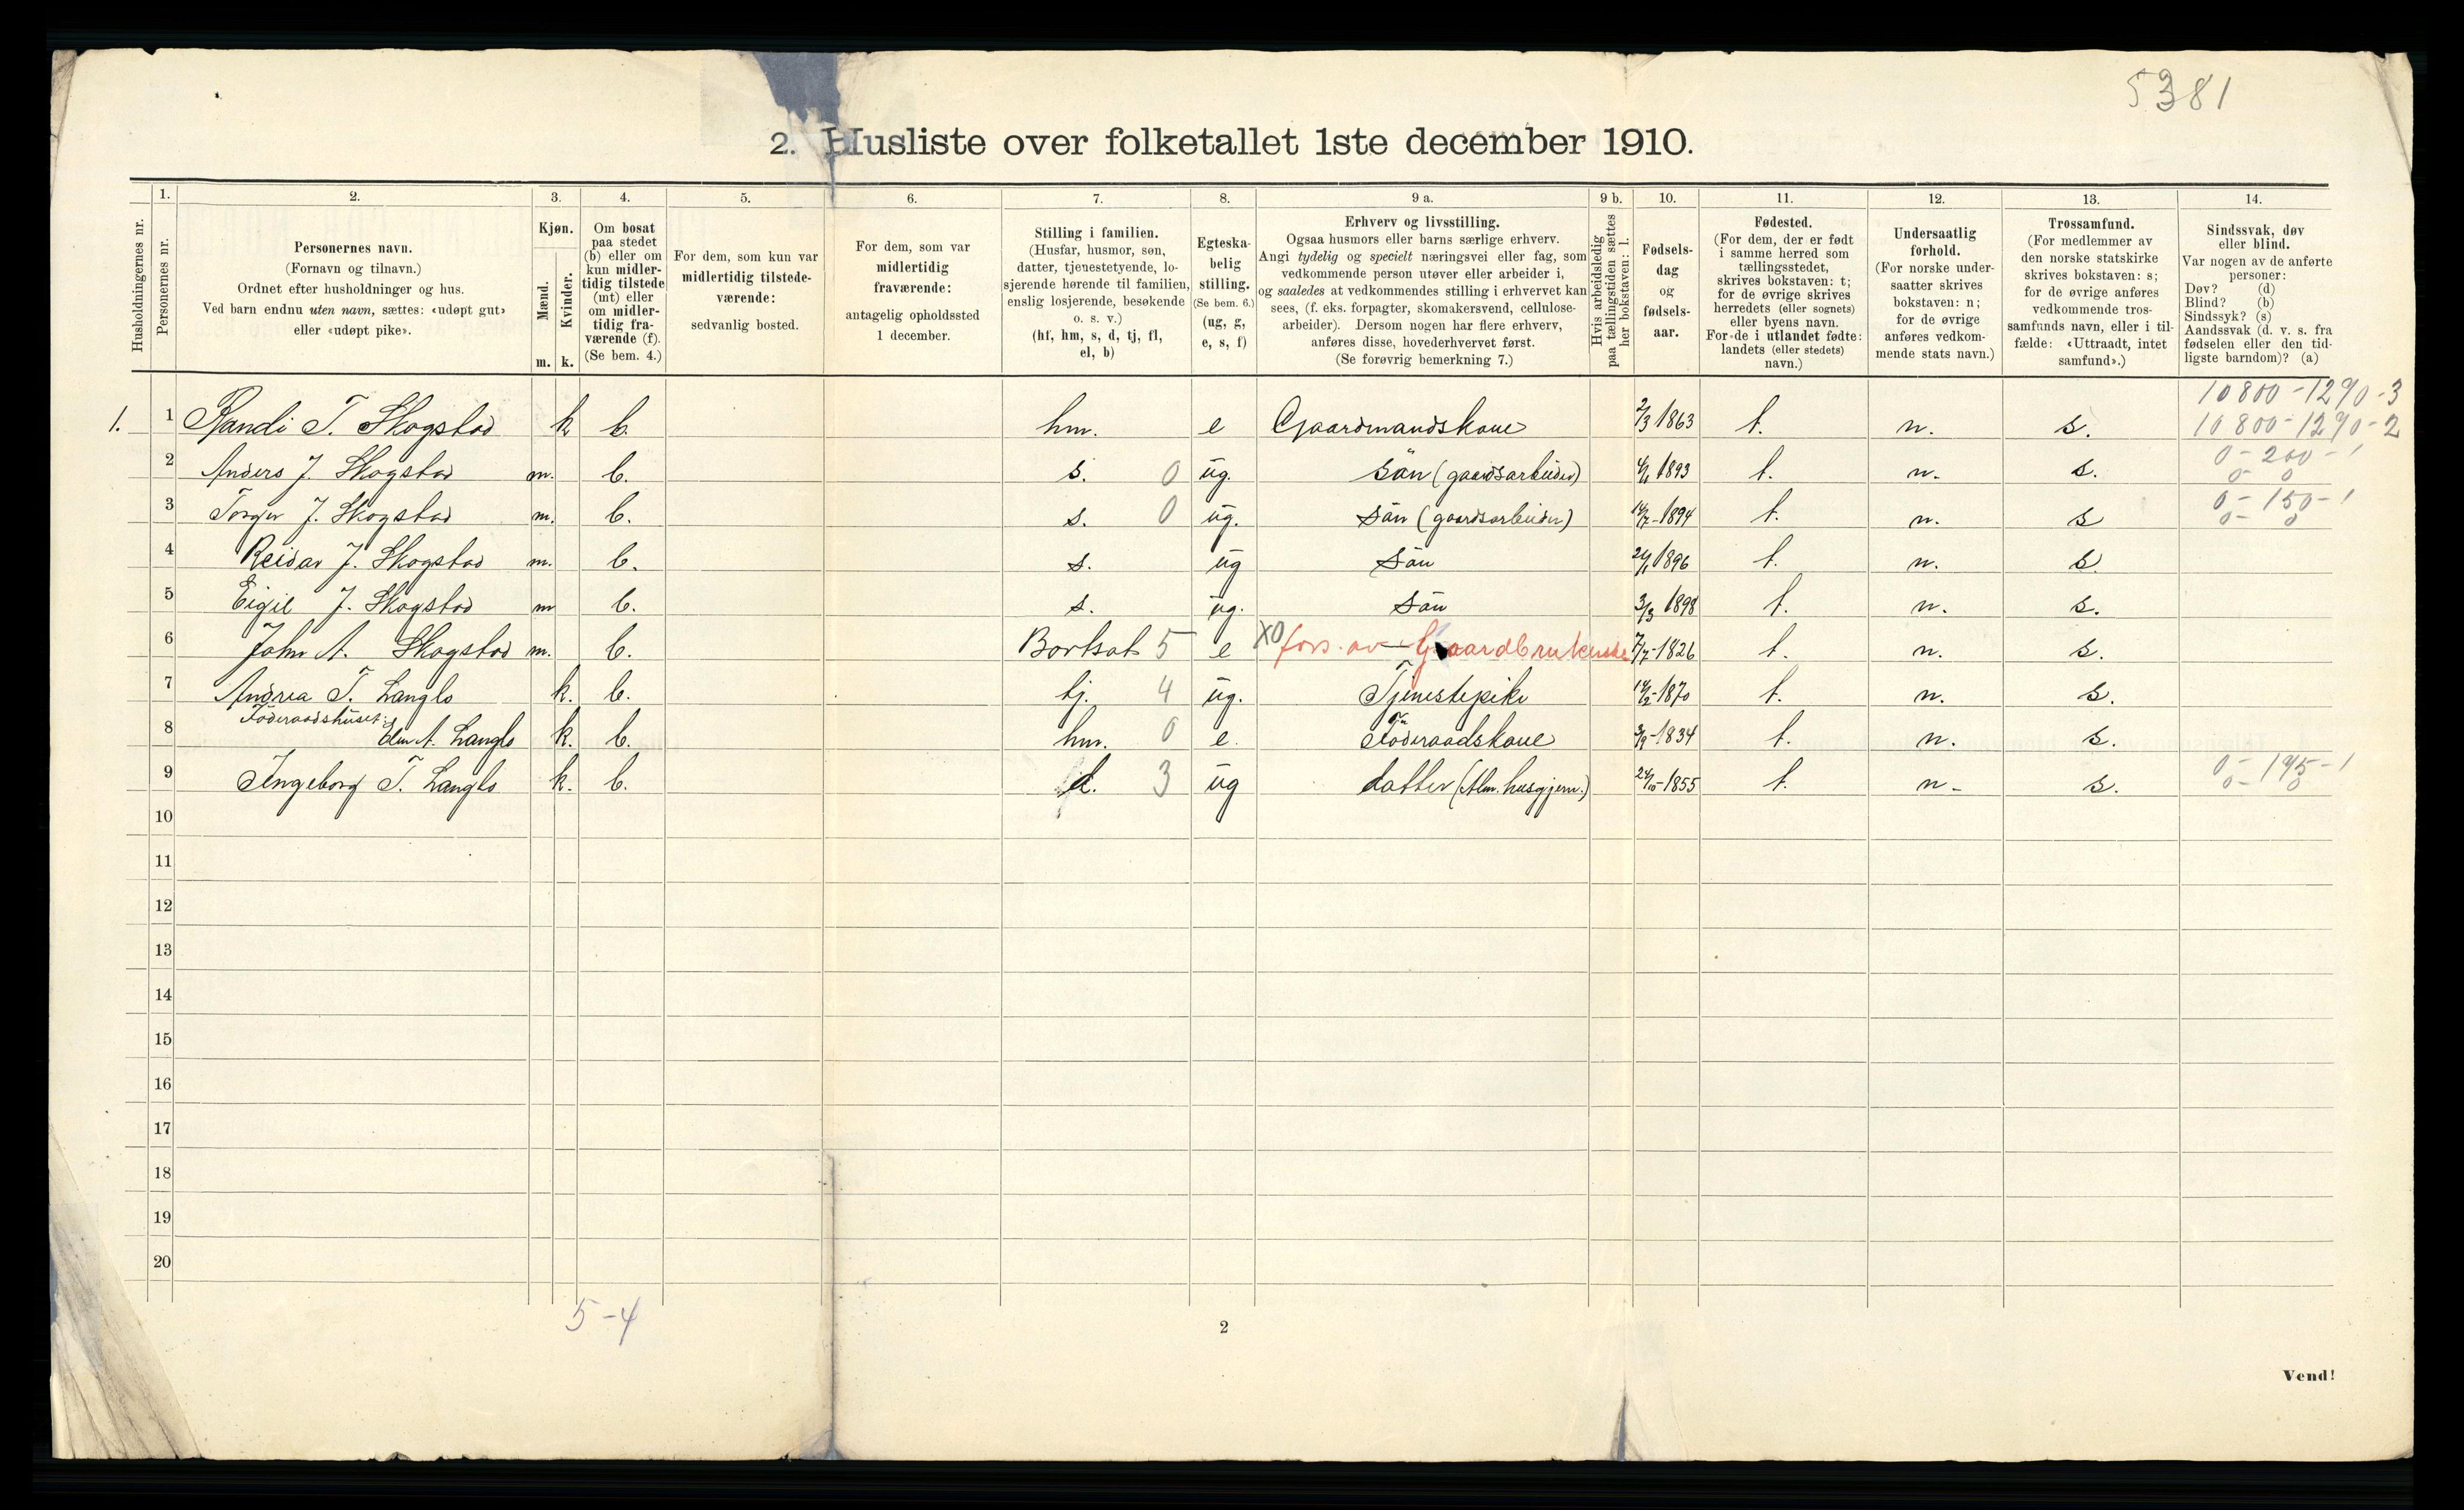 5381
2. Husliste over folketallet 1ste december 1910.
Husholdningernes nr.
1.
Personernes nr.
2.
Personernes navn.
(Fornavn og tilnavn.)
Ordnet efter husholdninger og hus.
Ved barn endnu uten navn, sættes: «udøpt gut»
eller «udøpt pike».
3.
Kjøn.
Mænd.
Kvinder.
m. k.
4.
Om bosat
paa stedet
(b) eller om
kun midler-
tidig tilstede
(mt) eller
om midler-
tidig fra-
værende (f).
(Se bem. 4.)
5.
For dem, som kun var
midlertidig tilstede-
værende:
sedvanlig bosted.
6.
For dem, som var
midlertidig
fraværende:
antagelig opholdssted
1 december.
7.
Stilling i familien.
(Husfar, husmor, søn,
datter, tjenestetyende, lo-
sjerende hørende til familien,
enslig losjerende, besøkende
o. s. v.)
(hf, hm, s, d, tj, fl,
el, b)
8.
Egteska-
belig
stilling.
(Se bem. 6.)
(ug, g,
e, s, f)
9 a.
Erhverv og livsstilling.
Ogsaa husmors eller barns særlige erhverv.
Angi tydelig og specielt næringsvei eller fag, som
vedkommende person utøver eller arbeider i,
og saaledes at vedkommendes stilling i erhvervet kan
sees, (f. eks. forpagter, skomakersvend, cellulose-
arbeider). Dersom nogen har flere erhverv,
anføres disse, hovederhvervet først.
(Se forøvrig bemerkning 7.)
9 b.
Hvis arbeidsledig
paa tællingstiden sættes
her bokstaven: l.
10.
Fødsels-
dag
og
fødsels-
aar.
11.
Fødested.
(For dem, der er født
i samme herred som
tællingsstedet,
skrives bokstaven: t;
for de øvrige skrives
herredets (eller sognets)
eller byens navn.
For de i utlandet fødte:
landets (eller stedets)
navn.)
12.
Undersaatlig
forhold.
(For norske under-
saatter skrives
bokstaven: n;
for de øvrige
anføres vedkom-
mende stats navn.)
13.
Trossamfund.
(For medlemmer av
den norske statskirke
skrives bokstaven: s;
for de øvrige anføres
vedkommende tros-
samfunds navn, eller i til-
fælde: «Uttraadt, intet
samfund».)
14.
Sindssvak, døv
eller blind.
Var nogen av de anførte
personer:
Døv? (d)
Blind? (b)
Sindssyk? (s)
Aandssvak (d. v. s. fra
fødselen eller den tid-
ligste barndom)? (a)
10800-1290-3
1. 1 Randi T. Skogstad k b. hm. e Gaardmandskone 2/3 1863 t. n. s. 10800-1290-2
2 Anders J. Skogstad m. b. s. 0 ug. sön (gaardsarbeider) 1893 t. n. s. 0-200-1
0- 0
3 Torger J. Skogstad m. b. s. 0 ug. sön (gaardsarbeider) 1894 t. n. s 0-150-1
0- 0
4 Reidar J. Skogstad m. b. s. ug sön 1896 t. n. s
5 Eigil J. Skogstad m b. s. ug. sön 3/3 1898 t. n. s.
6 John A. Skogstad m. b. Bortsat 5 e X0 fors. av Gaardbrukerske 7/7-1826 t. n. s.
7 Andrea T. Langlo k. b. tj. 4 ug. Tjenestepike 1870 t. n. s.
Föderaadshuset:
8 A. Langlo k. b. hm. 0 e. Föderaadskone 1834 t. n. s.
9 Ingeborg T. Langlo k. b. d. 3 ug datter (Alm. husgjern.) 24/10-1855 t. n- s. 0-175-1
0- 0
10
11
12
13
14
15
16
17
18
19
20
5-4
2
Vend!